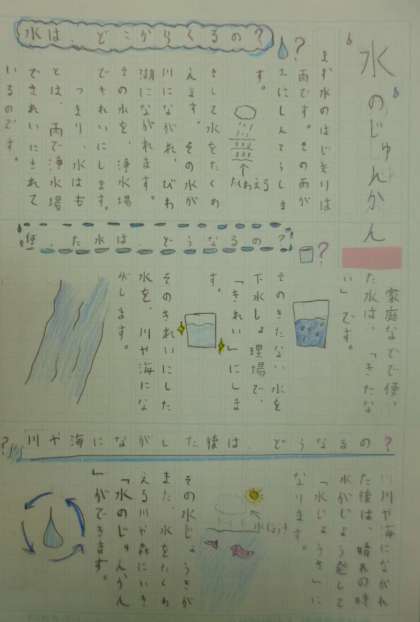 水のじゅんかん
水は、どこからくるの?
まず水のはじまりは
雨です。その雨が
す。
そして水をたくわ
えます。その水が
川にながれ、びわ
湖にながれます。
その水を、浄水場
できれいにします。
つまり、水はも
とは、雨で浄水場
できれいにされて
いるのです。
たくわえる
た水は どうなるの?
家庭などで使っ
た水は、「きたな
い」です。
そのきたない水を
下水しょ理場で、
「きれい」にしま
す。
そのきれいにした
水を、川や海になが
します。
川や海にながした後は、どうなるの?
川や海にながれ
た後は、晴れの時
水がじょう発して
「水じょうき」に
なります。
水じょうき
その水じょうきが
また、水をたくわ
える川や森にいき
「水のじゅんかん
」ができます。